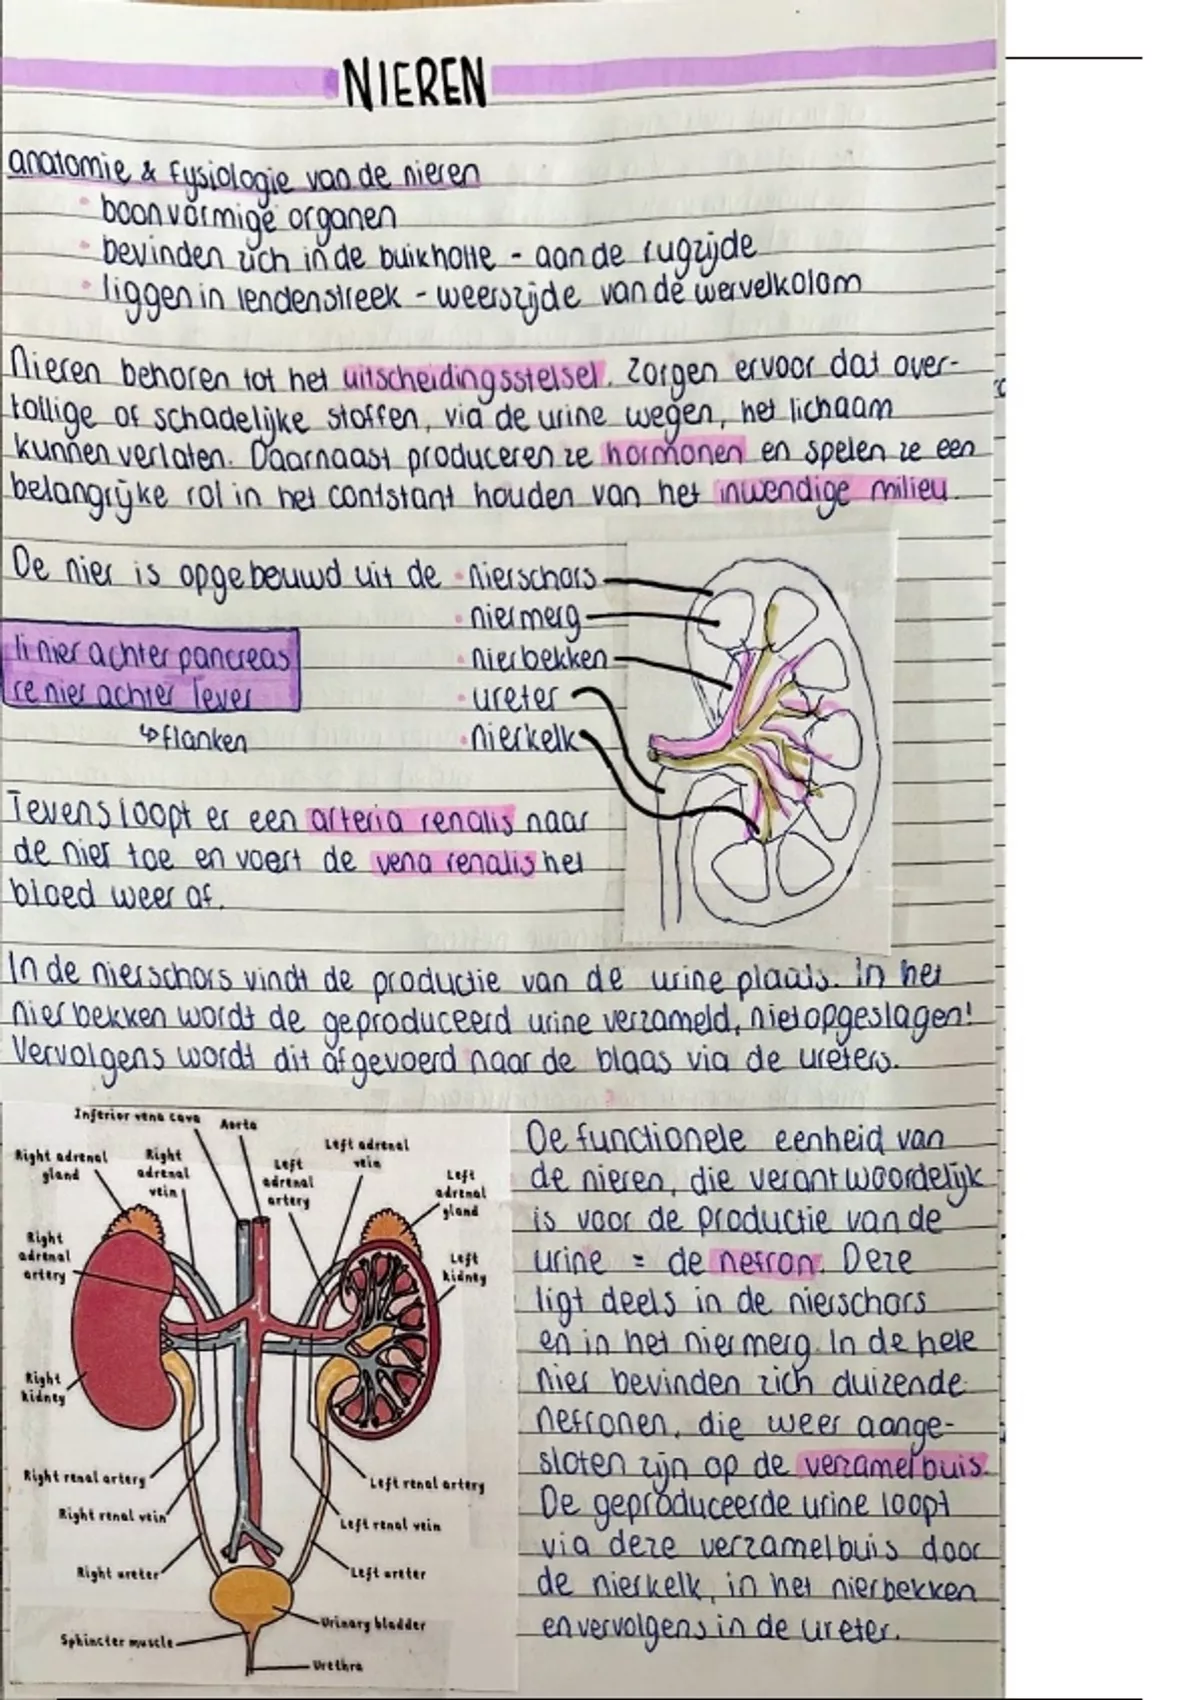 NIEREN
anatomie & fysiologie van de nieren
• boonvormige organen
• bevinden zich in de buikholte - aan de rugzijde
• liggen in lendenstreek - weerszijde van de wervelkolom
Nieren behoren tot het uitscheidingsstelsel. Zorgen ervoor dat over-
tollige of schadelijke stoffen, via de urine wegen, het lichaam
kunnen verlaten. Daarnaast produceren ze hormonen en spelen ze een
belangrijke rol in het contstant houden van het inwendige milieu.
De nier is opgebouwd uit de • nierschors
• niermerg
• nierbekken
• ureter
• nierkelk
li nier achter pancreas
re nier achter lever
↳ flanken
Tevens loopt er een arteria renalis naar
de nier toe en voert de vena renalis het
bloed weer af.
In de nierschors vindt de productie van de urine plaats. In het
nierbekken wordt de geproduceerd urine verzameld, niet opgeslagen!
Vervolgens wordt dit afgevoerd naar de blaas via de ureters.
Inferior vena cava
Aorta
Right adrenal
gland
Right
adrenal
vein
Left
adrenal
artery
Left adrenal
vein
Left
adrenal
gland
Right
adrenal
artery
Left
kidney
Right
kidney
Right renal artery
Left renal artery
Right renal vein
Left renal vein
Right ureter
Left ureter
Urinary bladder
Sphincter muscle
Urethra
De functionele eenheid van
de nieren, die verantwoordelijk
is voor de productie van de
urine = de nefron. Deze
ligt deels in de nierschors
en in het niermerg. In de hele
nier bevinden zich duizende
nefronen, die weer aange-
sloten zijn op de verzamelbuis.
De geproduceerde urine loopt
via deze verzamelbuis door
de nierkelk, in het nierbekken
en vervolgens in de ureter.